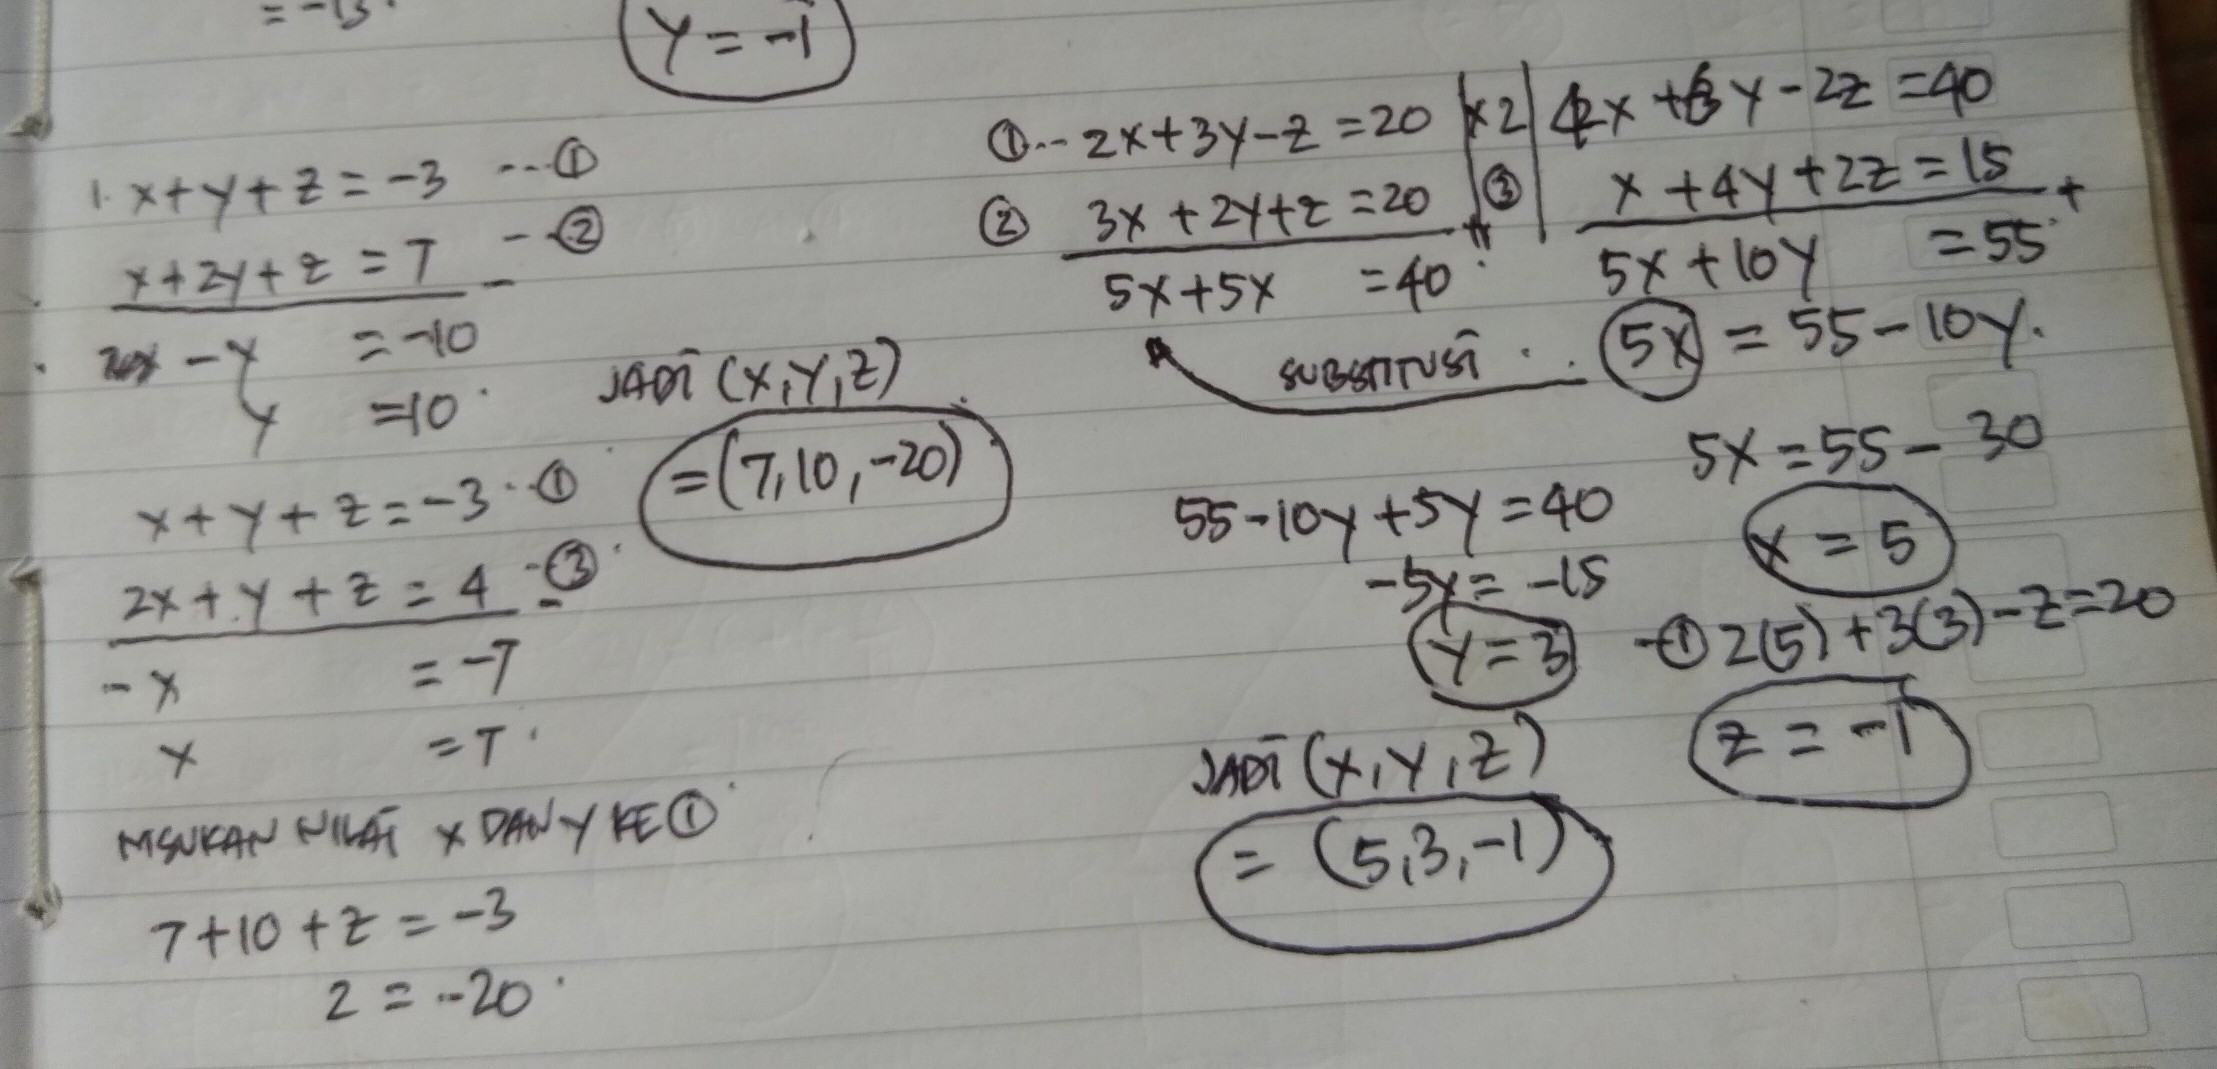 = -13.
Y = -1
1. x + y + z = -3 ... ①
x + 2y + z = 7 -- ②
-
- y = -10
y = 10.
x + y + z = -3 .. ①
2x + y + z = 4 - ③
-
- x = -7
x = 7.
MSUKAN NILAI x DAN Y KE ①
7 + 10 + z = -3
z = -20.
JADI (x, y, z)
= (7, 10, -20)
①... 2x + 3y - z = 20 | x2 | 4x + 6y - 2z = 40
② 3x + 2y + z = 20 | ③ | x + 4y + 2z = 15
+ +
5x + 5x = 40. 5x + 10y = 55.
SUBSTITUSI . . 5x = 55 - 10y.
5x = 55 - 30
55 - 10y + 5y = 40
x = 5
-5y = -15
y = 3
-① 2(5) + 3(3) - z = 20
z = -1
JADI (x, y, z)
= (5, 3, -1)